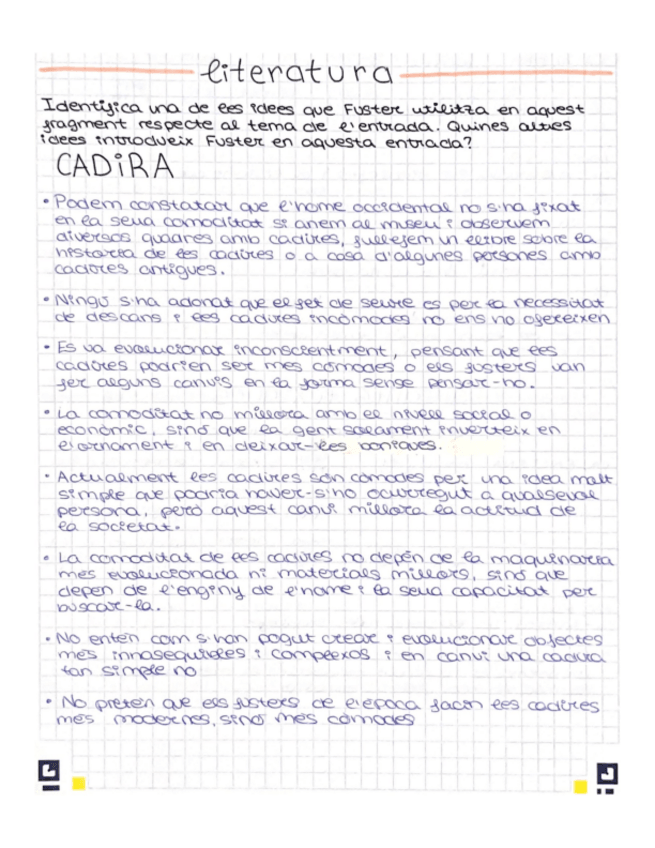 literatura
Identifica una de les idees que Fuster utilitza en aquest
fragment respecte al tema de l'entrada. Quines altres
idees introdueix Fuster en aquesta entrada?
CADiRA
• Podem constatar que l'home occidental no s'ha fixat
en la seua comoditat si anem al museu i observem
diversos quadres amb cadires, fullejem un llibre sobre la
història de les cadires o a casa d'algunes persones amb
cadires antigues.
• Ningú s'ha adonat que el fet de seure és per la necessitat
de descans i les cadires incòmodes no ens ho ofereixen
• Es va evolucionar inconscientment, pensant que les
cadires podrien ser més còmodes o els fusters van
fer alguns canvis en la forma sense pensar-ho.
• La comoditat no millora amb el nivell social o
econòmic, sinó que la gent solament inverteix en
l'ornament i en deixar-les boniques.
• Actualment les cadires són còmodes per una idea molt
simple que podria haver-s'ho ocurregut a qualsevol
persona, però aquest canvi millora la actitud de
la societat.
• La comoditat de les cadires no depén de la maquinaria
més evolucionada ni materials millors, sinó que
depen de l'enginy de l'home i la seua capacitat per
buscar-la.
• No entén com s'han pogut crear i evolucionar objectes
més innasequibles i complexos i en canvi una cadira
tan simple no
• No pretén que els fusters de l'època facin les cadires
més modernes, sinó més còmodes